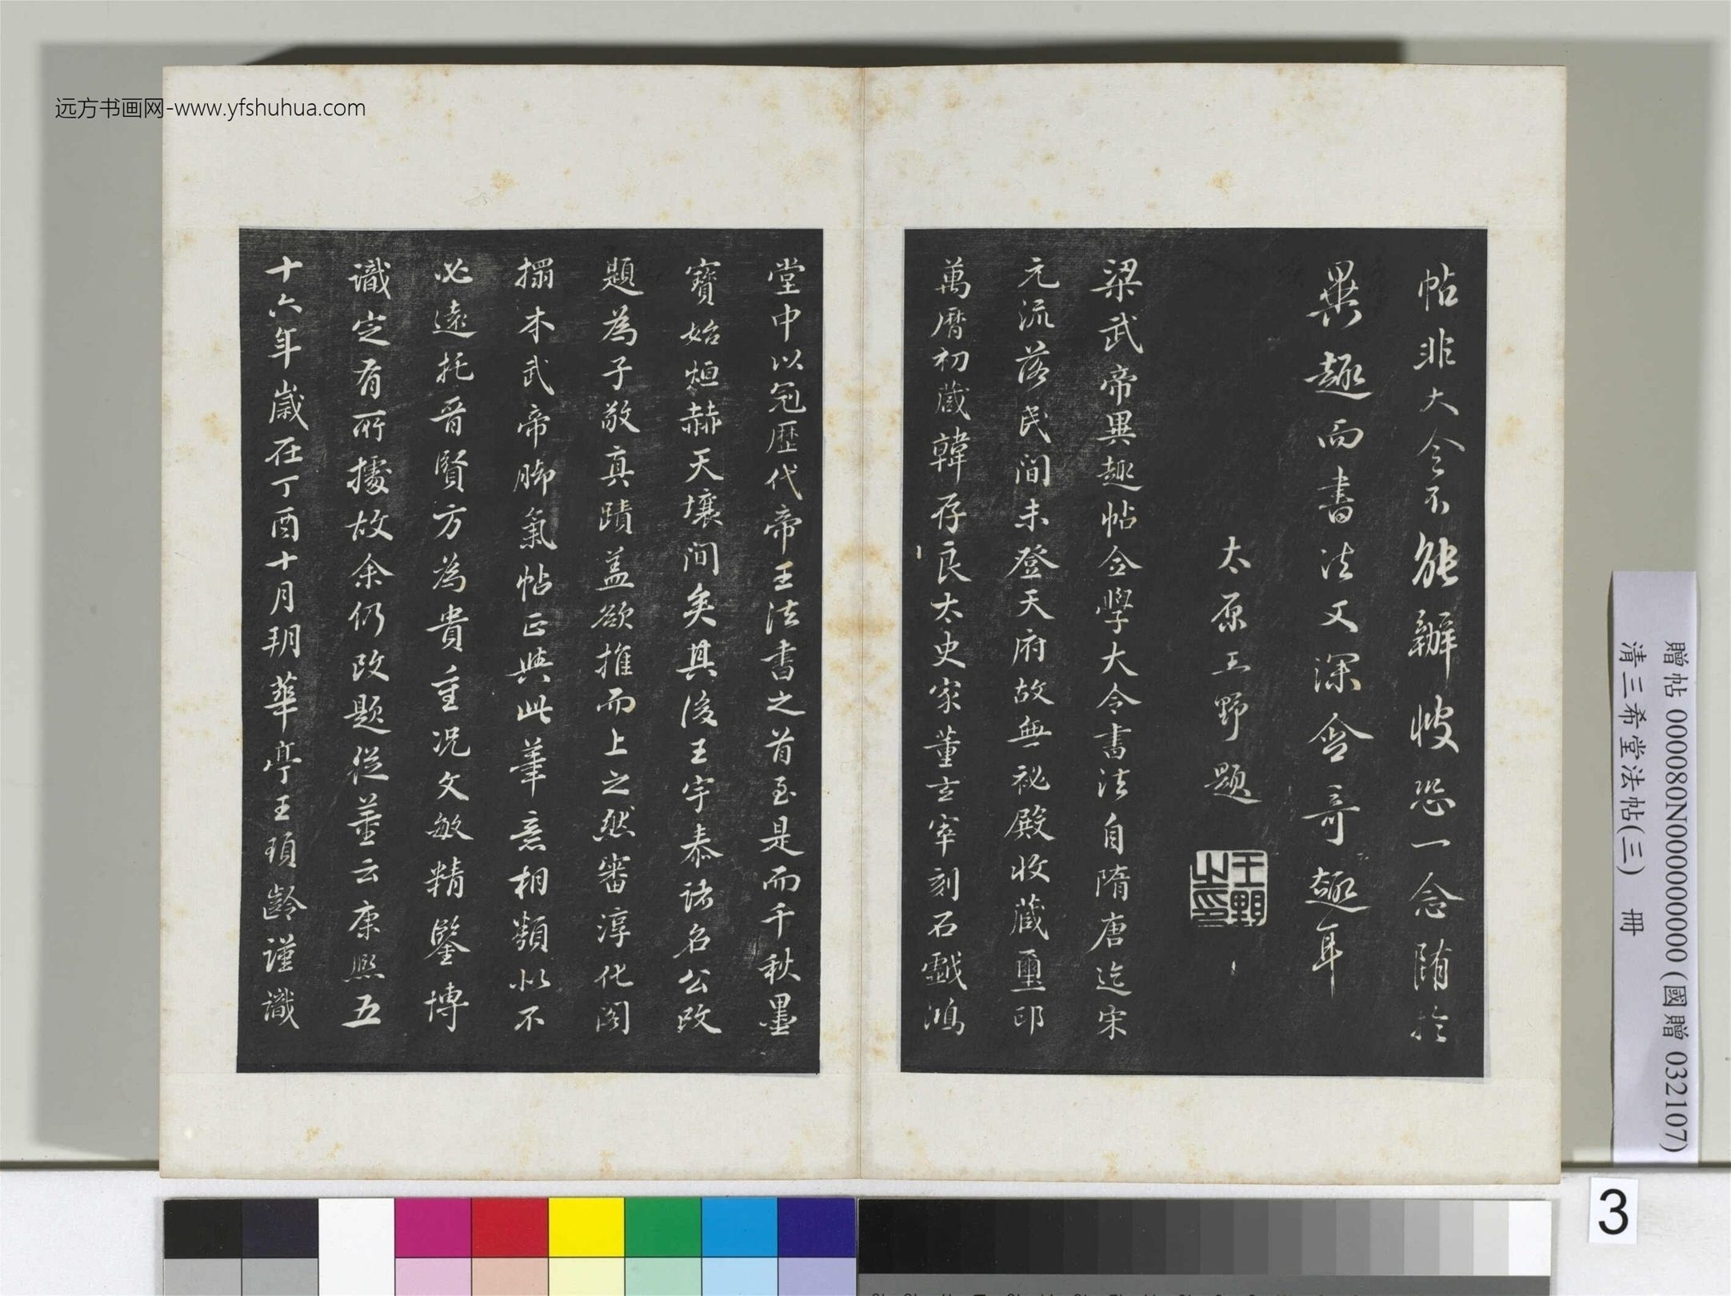 远方书画网-www.yfshuhua.com
帖非大令不能辦彼恐一念隨於
異趣而書法又深會奇趣耳
太原王野題
王野之印
梁武帝異趣帖全學大令書法自隋唐迄宋
元流落民間未登天府故無祕殿收藏璽印
萬曆初藏韓存良太史家董玄宰刻石戲鴻
堂中以冠歷代帝王法書之首至是而千秋墨
寶始烜赫天壤間矣其後王宇泰諸名公改
題為子敬真蹟蓋欲推而上之然審淳化閣
搨本武帝腳氣帖正與此筆意相類似不
必遠托晉賢方為貴重況文敏精鑒博
識定有所據故余仍改題從董云康熙五
十六年歲在丁酉十月朔華亭王頊齡謹識
贈帖 000080N000000000 (國贈 032107)
清三希堂法帖(三) 冊
3